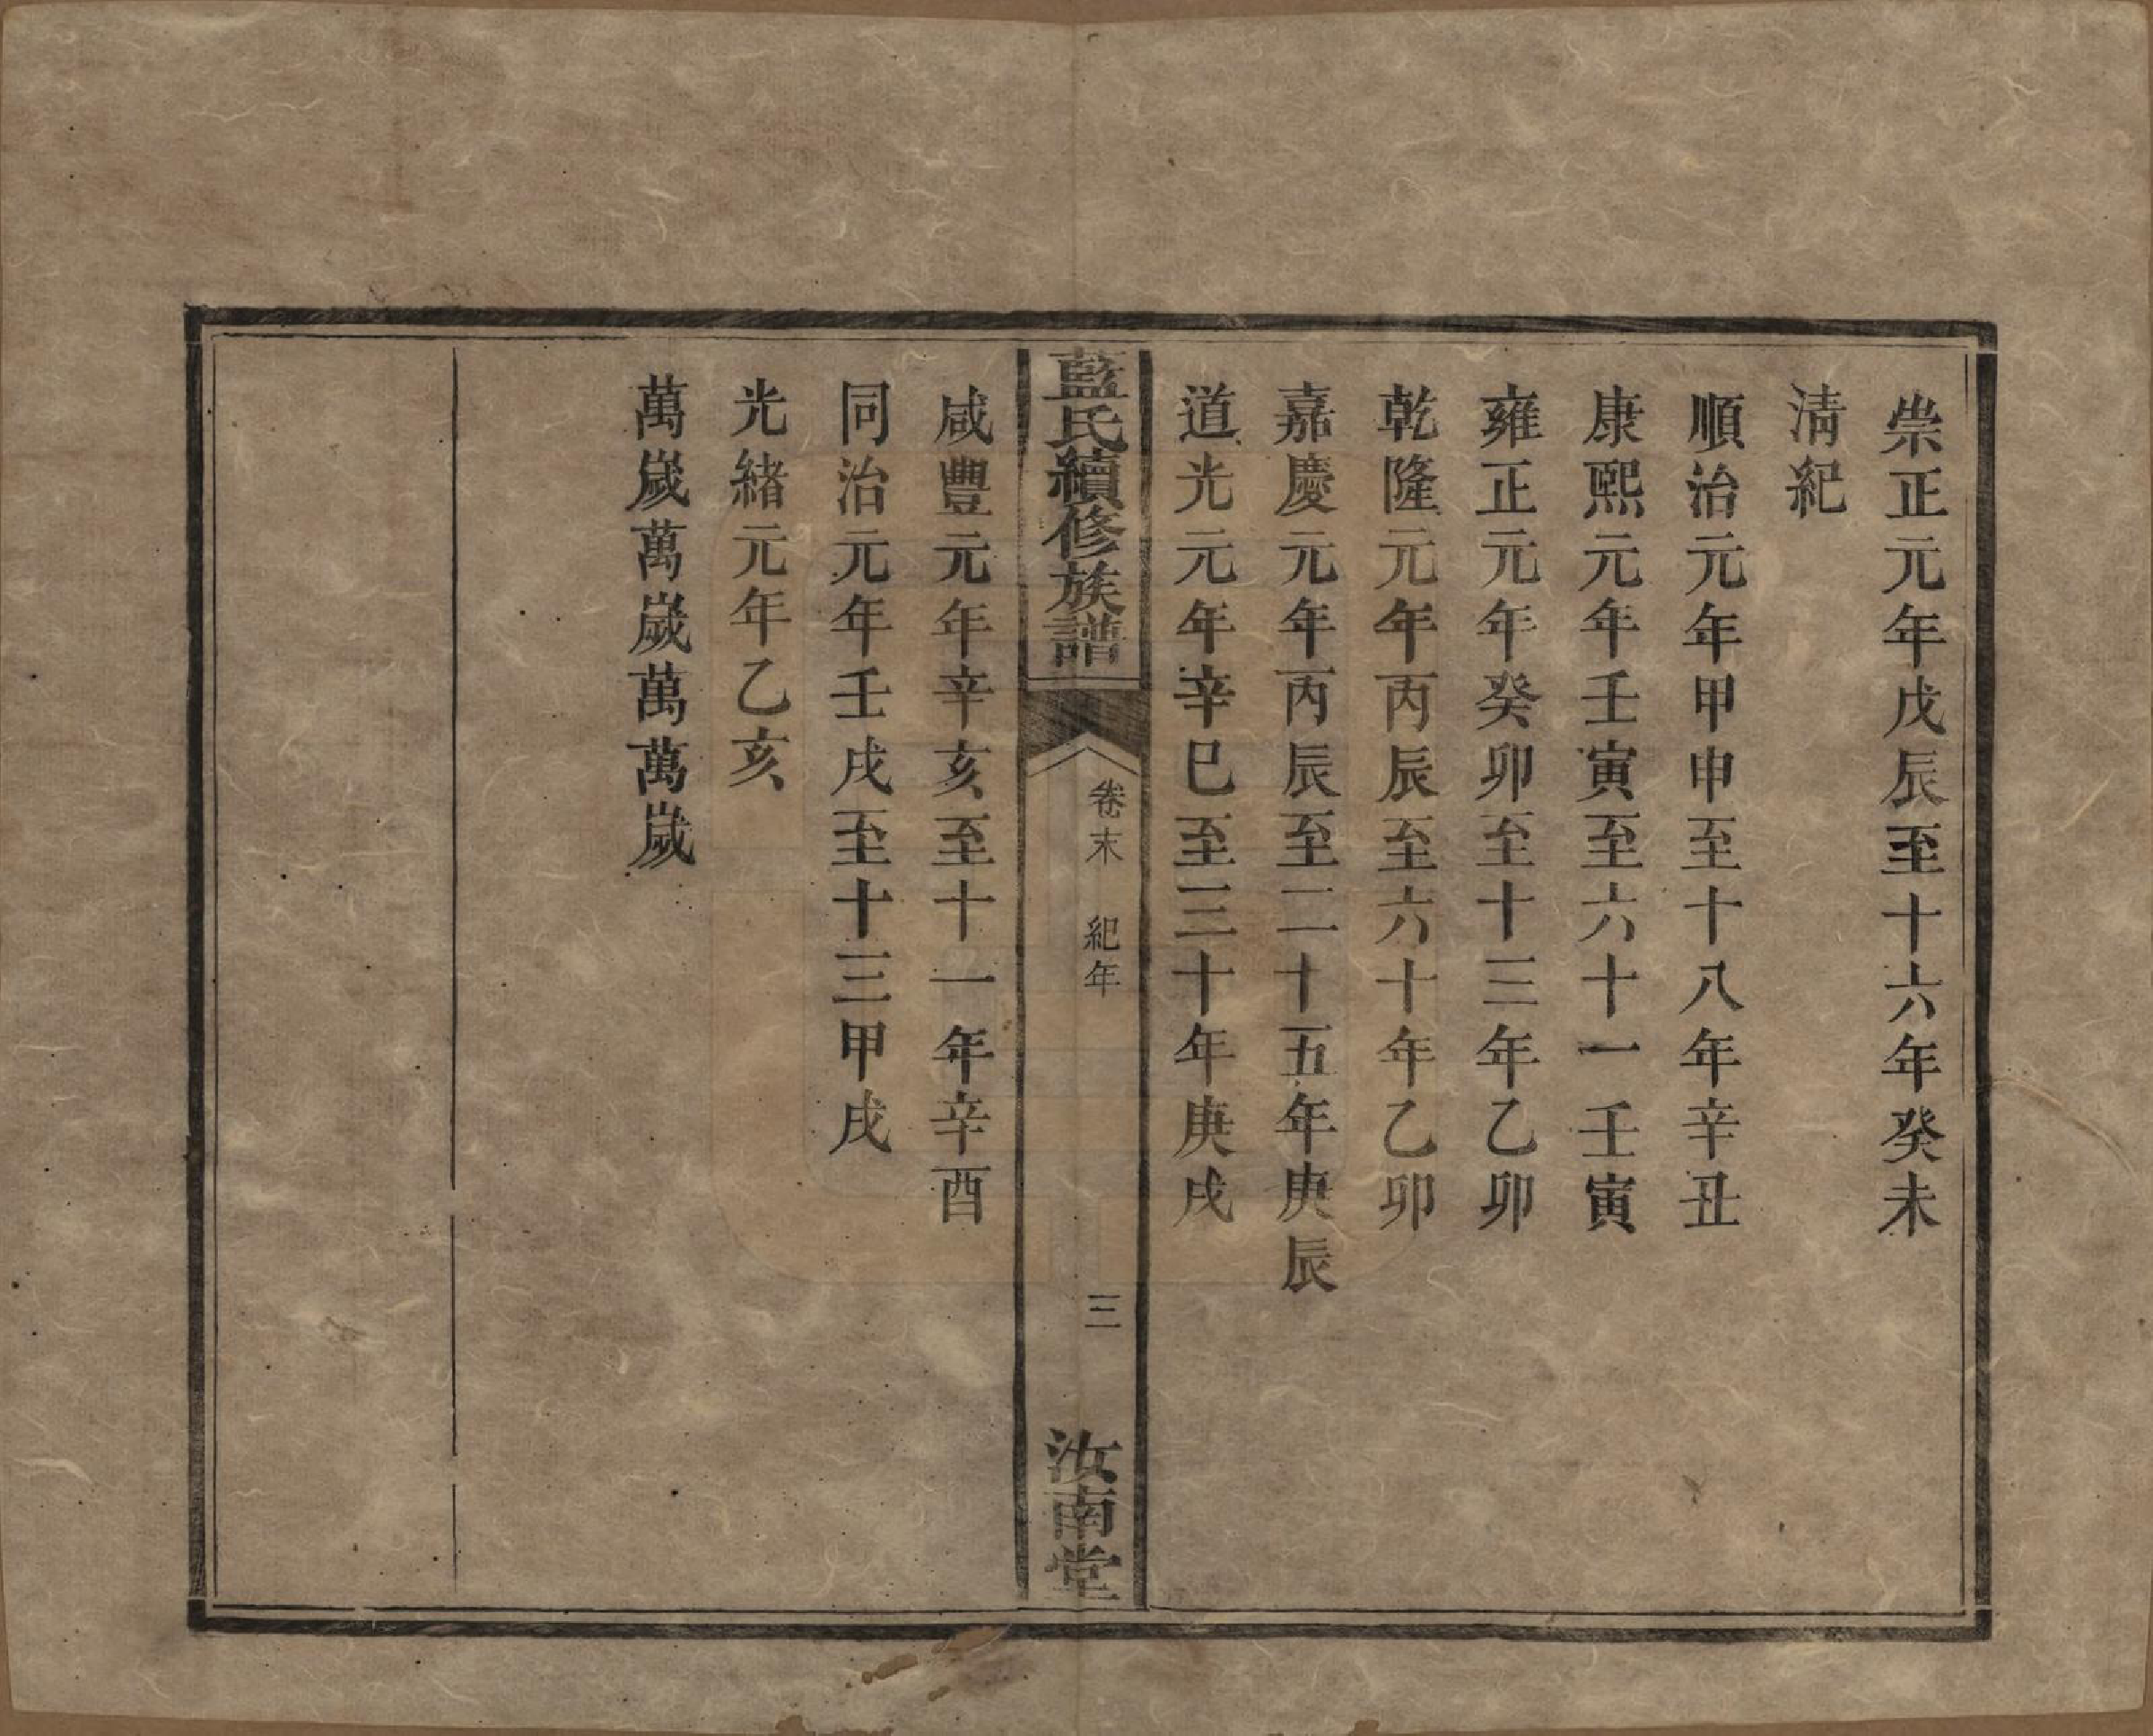 崇正元年戊辰至十六年癸未
清紀
順治元年甲申至十八年辛丑
康熙元年壬寅至六十一壬寅
雍正元年癸卯至十三年乙卯
乾隆元年丙辰至六十年乙卯
嘉慶元年丙辰至二十五年庚辰
道光元年辛巳至三十年庚戌
藍氏續修族譜
卷末 紀年
三
汝南堂
咸豐元年辛亥至十一年辛酉
同治元年壬戌至十三甲戌
光緒元年乙亥
萬嵗萬嵗萬萬嵗